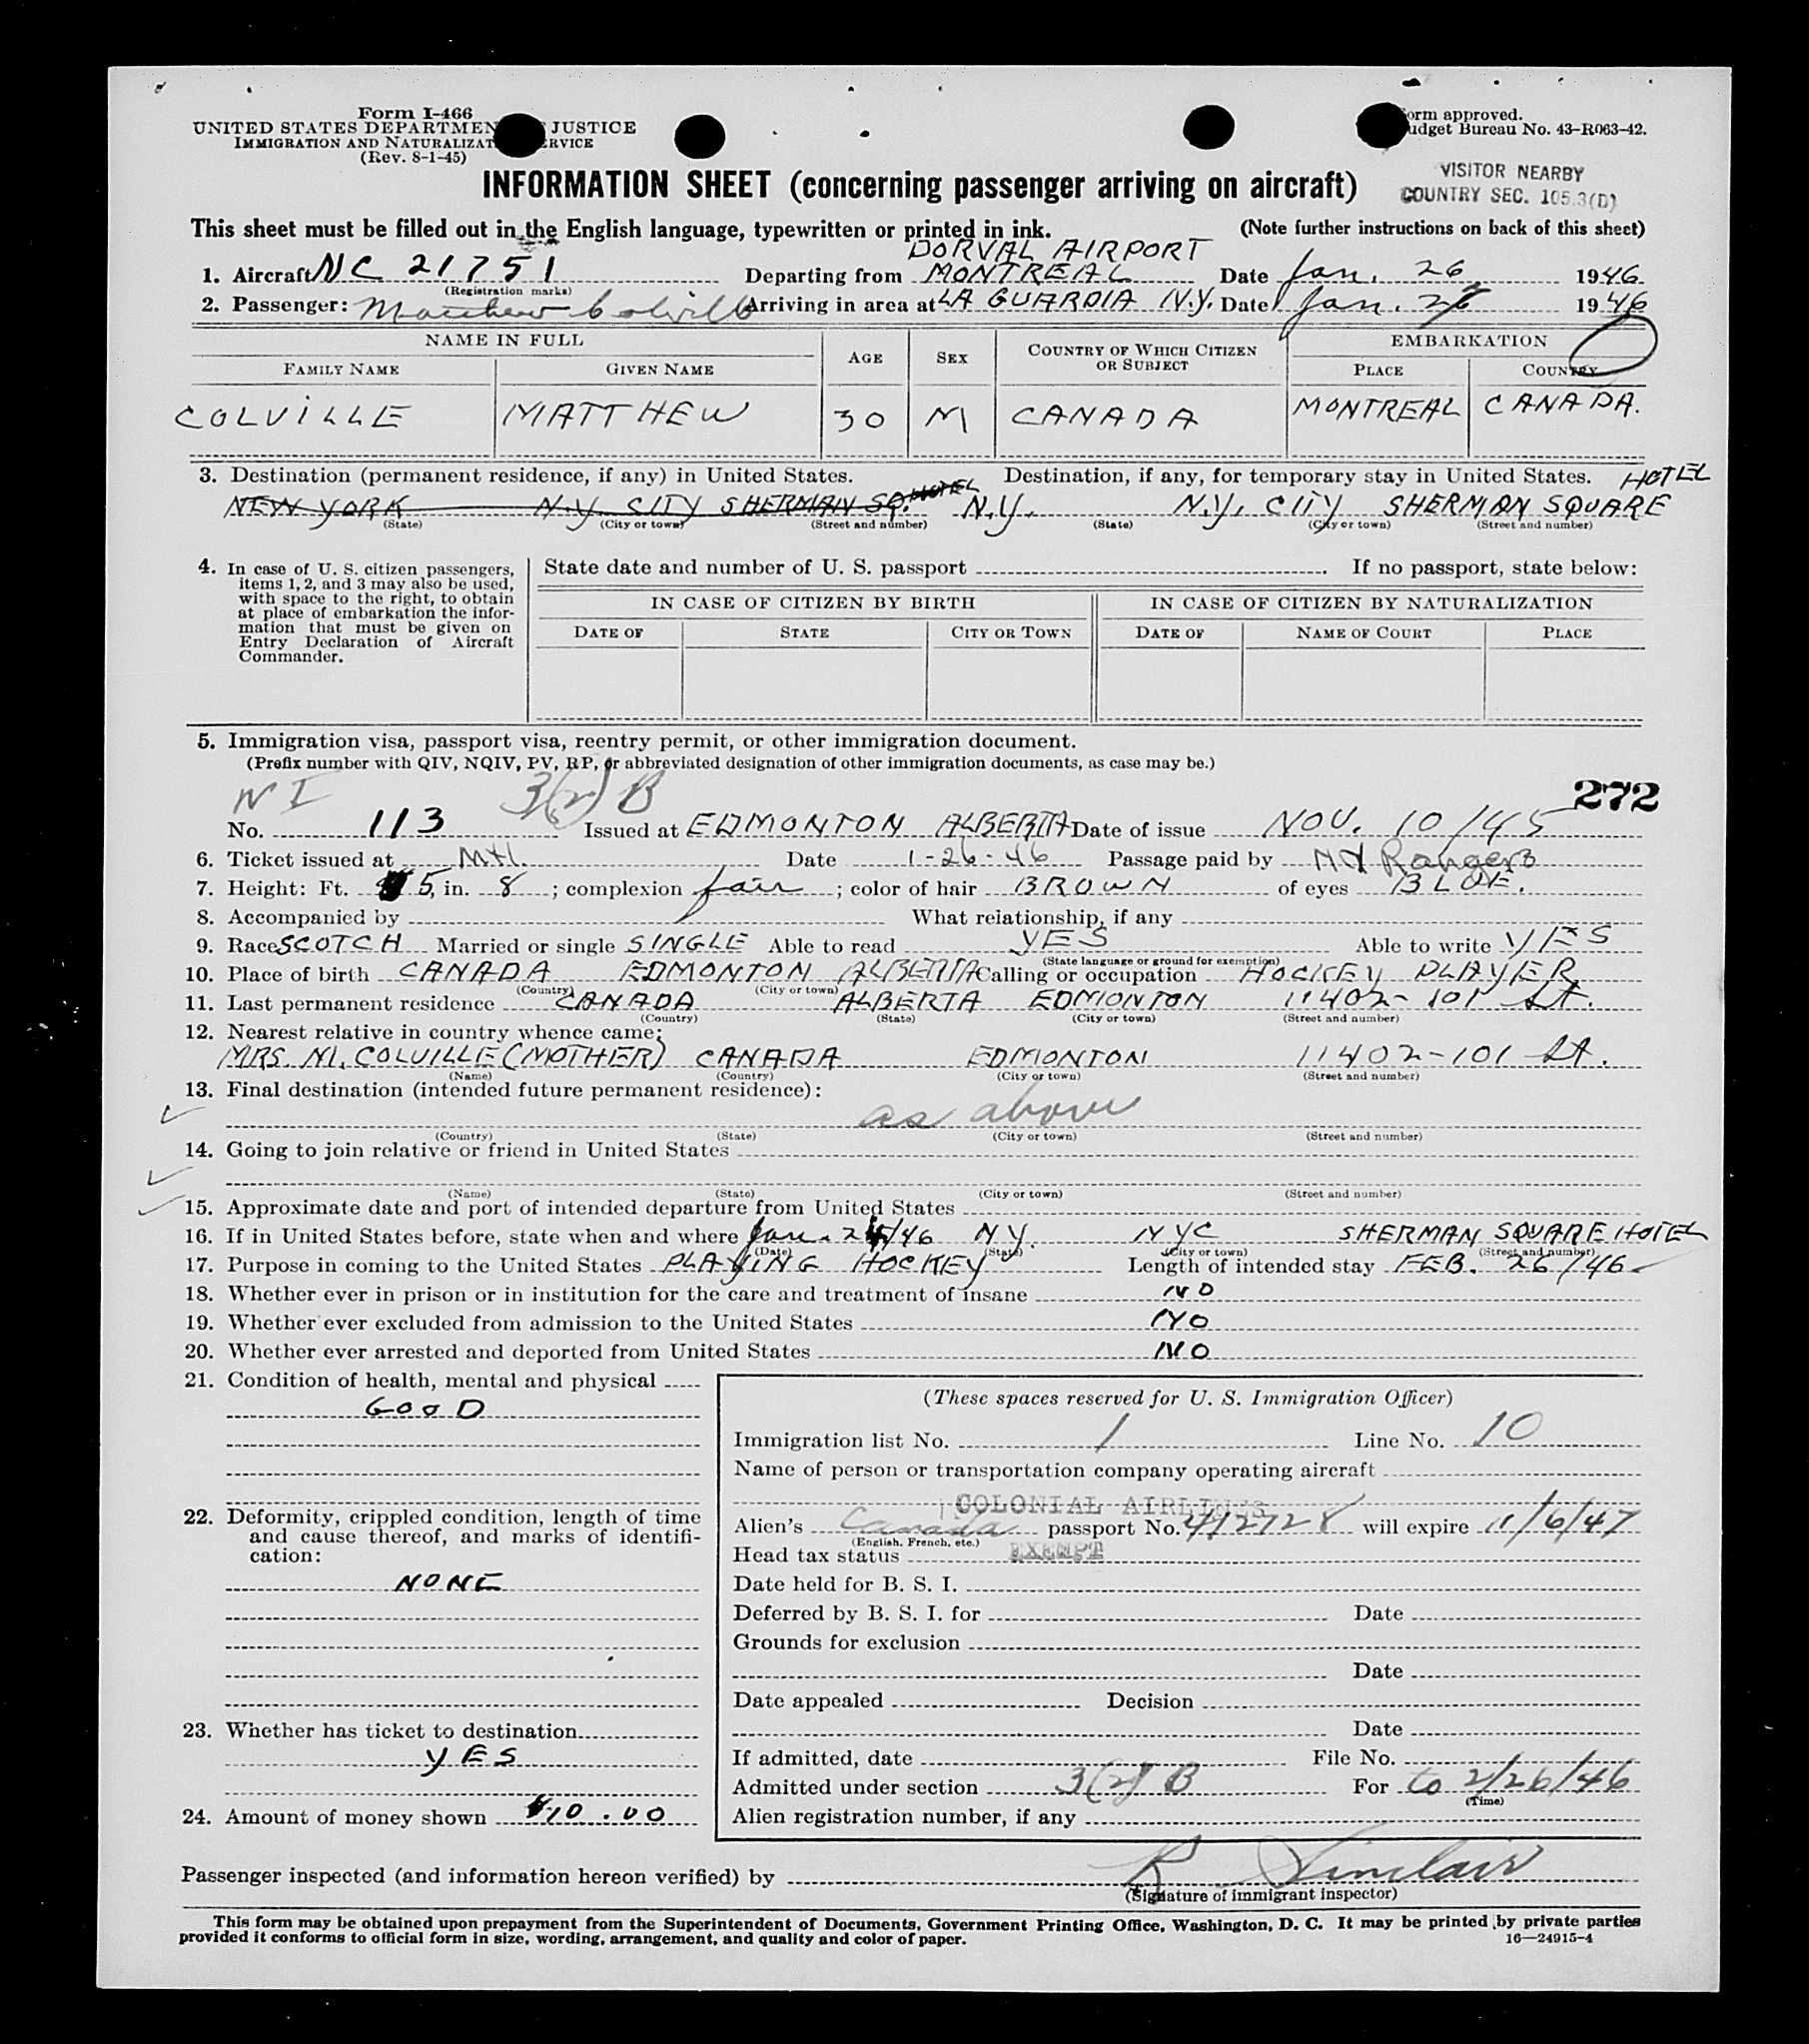 Form I-466
UNITED STATES DEPARTMENT JUSTICE
IMMIGRATION AND NATURALIZAT ERVICE
(Rev. 8-1-45)
orm approved.
udget Bureau No. 43-R063-42.
INFORMATION SHEET (concerning passenger arriving on aircraft)
VISITOR NEARBY
COUNTRY SEC. 105.3(D)
This sheet must be filled out in the English language, typewritten or printed in ink. (Note further instructions on back of this sheet)
DORVAL AIRPORT
1. Aircraft NC 21751 Departing from MONTREAL Date Jan. 26 1946
(Registration marks)
2. Passenger: Matthew Colville Arriving in area at LA GUARDIA N.Y. Date Jan. 26 1946
NAME IN FULL AGE SEX COUNTRY OF WHICH CITIZEN OR SUBJECT EMBARKATION
FAMILY NAME GIVEN NAME PLACE COUNTRY
COLVILLE MATTHEW 30 M CANADA MONTREAL CANADA.
3. Destination (permanent residence, if any) in United States. Destination, if any, for temporary stay in United States. HOTEL
NEW YORK N.Y. CITY SHERMAN SQ. HOTEL N.Y. N.Y. CITY SHERMAN SQUARE
(State) (City or town) (Street and number) (State) (City or town) (Street and number)
4. In case of U. S. citizen passengers, items 1, 2, and 3 may also be used, with space to the right, to obtain at place of embarkation the information that must be given on Entry Declaration of Aircraft Commander.
State date and number of U. S. passport . If no passport, state below:
IN CASE OF CITIZEN BY BIRTH IN CASE OF CITIZEN BY NATURALIZATION
DATE OF STATE CITY OR TOWN DATE OF NAME OF COURT PLACE
5. Immigration visa, passport visa, reentry permit, or other immigration document.
(Prefix number with QIV, NQIV, PV, RP, or abbreviated designation of other immigration documents, as case may be.)
NI 3(2) B 272
No. 113 Issued at EDMONTON ALBERTA Date of issue NOV. 10/45
6. Ticket issued at Mtl. Date 1-26-46 Passage paid by NY Rangers
7. Height: Ft. 5, in. 8; complexion fair; color of hair BROWN of eyes BLUE.
8. Accompanied by What relationship, if any
9. Race SCOTCH Married or single SINGLE Able to read YES Able to write YES
(State language or ground for exemption)
10. Place of birth CANADA EDMONTON ALBERTA Calling or occupation HOCKEY PLAYER
(Country) (City or town)
11. Last permanent residence CANADA ALBERTA EDMONTON 11402-101 St.
(Country) (State) (City or town) (Street and number)
12. Nearest relative in country whence came:
MRS. M. COLVILLE (MOTHER) CANADA EDMONTON 11402-101 St.
(Name) (Country) (City or town) (Street and number)
13. Final destination (intended future permanent residence):
as above
(Country) (State) (City or town) (Street and number)
14. Going to join relative or friend in United States
(Name) (State) (City or town) (Street and number)
15. Approximate date and port of intended departure from United States
16. If in United States before, state when and where Jan. /46 NY. NYC SHERMAN SQUARE HOTEL
(Date) (State) (City or town) (Street and number)
17. Purpose in coming to the United States PLAYING HOCKEY Length of intended stay FEB. 26/46
18. Whether ever in prison or in institution for the care and treatment of insane NO
19. Whether ever excluded from admission to the United States NO
20. Whether ever arrested and deported from United States NO
21. Condition of health, mental and physical
GOOD
22. Deformity, crippled condition, length of time and cause thereof, and marks of identification:
NONE
23. Whether has ticket to destination
YES
24. Amount of money shown $10.00
(These spaces reserved for U. S. Immigration Officer)
Immigration list No. 1 Line No. 10
Name of person or transportation company operating aircraft
COLONIAL AIRLINES
Alien's Canada passport No. 412728 will expire 11/6/47
(English, French, etc.)
Head tax status EXEMPT
Date held for B. S. I.
Deferred by B. S. I. for Date
Grounds for exclusion
Date
Date appealed Decision
Date
If admitted, date File No.
Admitted under section 3(2) B For to 2/26/46
(Time)
Alien registration number, if any
Passenger inspected (and information hereon verified) by R Sinclair
(Signature of immigrant inspector)
This form may be obtained upon prepayment from the Superintendent of Documents, Government Printing Office, Washington, D. C. It may be printed by private parties
provided it conforms to official form in size, wording, arrangement, and quality and color of paper.
16—24915-4